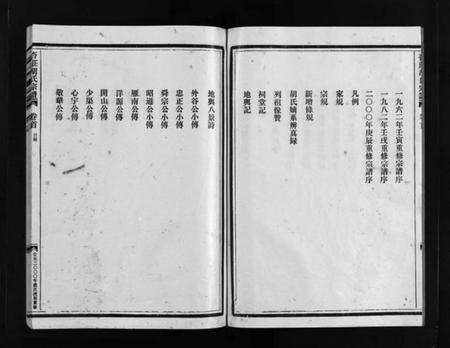 一九六二年壬寅重修宗譜序
一九八二年壬戌重修宗譜序
二〇〇〇年庚辰重修宗譜序
凡例
家規
宗規
新增條規
胡氏嫡系辨真録
列祖像贊
祠堂記
地輿記
地輿八景詩
外谷公小傳
忠正公小傳
舜宗公小傳
昭通公小傳
雁南公傳
洋源公傳
開山公傳
少渠公傳
心宇公傳
敬華公傳
胡氏宗譜
卷首
目録